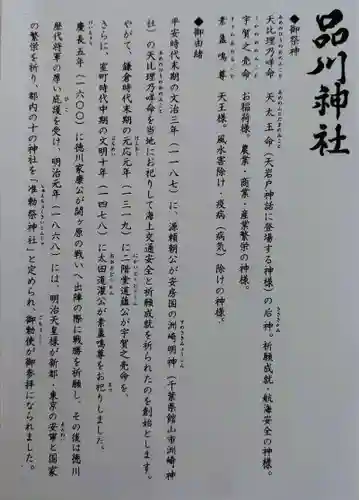 品川神社
◆御祭神
天比理乃咩命　天太玉命（天岩戸神話に登場する神様）の后神。祈願成就・航海安全の神様。
宇賀之売命　お稲荷様。農業・商業・産業繁栄の神様。
素盞嗚尊　天王様。風水害除け・疫病（病気）除けの神様。
◆御由緒
平安時代末期の文治三年（一一八七）に、源頼朝公が安房国の洲崎明神（千葉県館山市洲崎神
社）の天比理乃咩命を当地にお祀りして海上交通安全と祈願成就を祈られたのを創始とします。
やがて、鎌倉時代末期の元応元年（一三一九）に二階堂道蘊公が宇賀之売命を、
さらに、室町時代中期の文明十年（一四七八）に太田道灌公が素盞嗚尊をお祀りしました。
慶長五年（一六〇〇）に徳川家康公が関ヶ原の戦いへ出陣の際に戦勝を祈願し、その後は徳川
歴代将軍の厚い庇護を受け、明治元年（一八六八）には、明治天皇様が新都・東京の安寧と国家
の繁栄を祈り、都内の十の神社を「准勅祭神社」と定められ、御勅使が御参拝になられました。